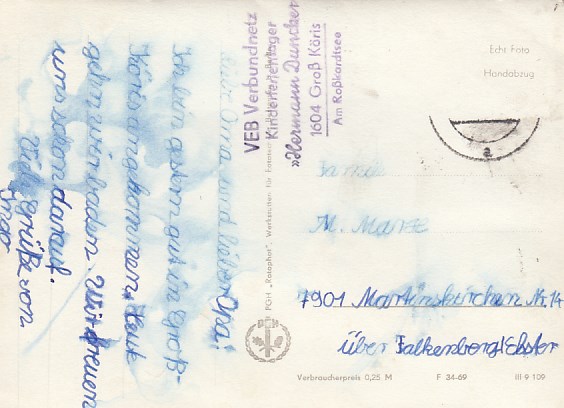 Liebe Oma und lieber Opa!
Ich bin gestern gut in Groß-
Köris angekommen. Heut
gehen wir baden. Wir freuen
uns schon darauf.
Viele grüße von
Ingo
VEB Verbundnetz
Kinderferienlager
»Hermann Duncker
1604 Groß Köris
Am Roßkardtsee
Echt Foto
Handabzug
a
Familie
M. Manze
7901 Martinskirchen Nr. 14
über Falkenberg/Elster
PGH „Rotophot“, Werkstätten für
Verbraucherpreis 0,25 M
F 34-69
III 9 109